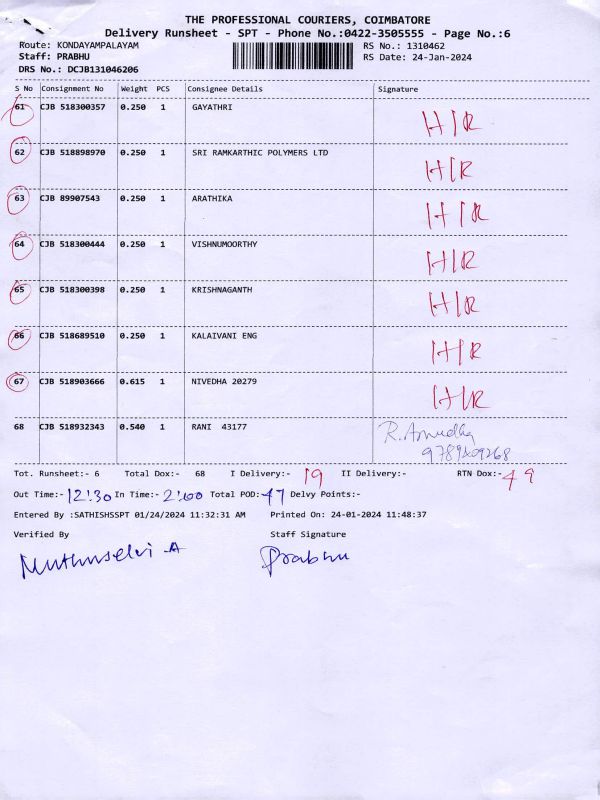 THE PROFESSIONAL COURIERS, COIMBATORE
Delivery Runsheet - SPT - Phone No.:0422-3505555 - Page No.:6
Route: KONDAYAMPALAYAM RS No.: 1310462
Staff: PRABHU RS Date: 24-Jan-2024
DRS No.: DCJB131046206
S No Consignment No Weight PCS Consignee Details Signature
61 CJB 518300357 0.250 1 GAYATHRI H/R
62 CJB 518898970 0.250 1 SRI RAMKARTHIC POLYMERS LTD H/R
63 CJB 89907543 0.250 1 ARATHIKA H/R
64 CJB 518300444 0.250 1 VISHNUMOORTHY H/R
65 CJB 518300398 0.250 1 KRISHNAGANTH H/R
66 CJB 518689510 0.250 1 KALAIVANI ENG H/R
67 CJB 518903666 0.615 1 NIVEDHA 20279 H/R
68 CJB 518932343 0.540 1 RANI 43177 R.
Tot. Runsheet:- 6 Total Dox:- 68 I Delivery:- 19 II Delivery:- RTN Dox:- 49
Out Time:- 12:30 In Time:- 2:00 Total POD:- Delvy Points:-
Entered By :SATHISHSSPT 01/24/2024 11:32:31 AM Printed On: 24-01-2024 11:48:37
Verified By Staff Signature
Muthuselvi A Prabhu